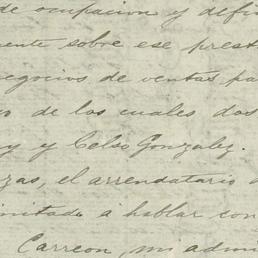 de ocupacion y defi
mente sobre ese prest
negocios de ventas pa
de los cuales dos
y y Celso Gonzalez.
zas, el arrendatario
invitado á hablar con
Carreon, mi admi